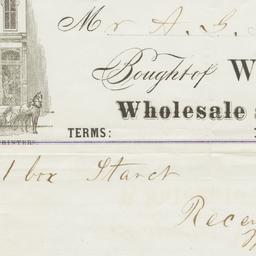 Mr A. S.
Bought of W
Wholesale
TERMS:
PRINTERS.
1 box Starch
Rece